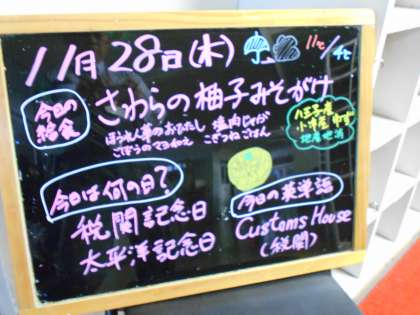 11月28日(木) 11℃/4℃
今日の給食
さわらの柚子みそがけ
ほうれん草のおひたし 塩肉じゃが
ごぼうのごまあえ こぎつねごはん
八王子産
小津産 ゆず
地産地消
今日は何の日?
税関記念日
太平洋記念日
今日の英単語
Customs House
(税関)